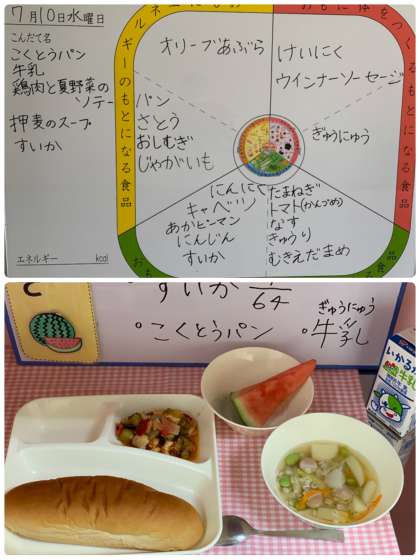 7月10日水曜日
こんだて名
こくとうパン
牛乳
鶏肉と夏野菜の
ソテー
押麦のスープ
すいか
エネルギー kcal
ルギーのもとになる食品
おもに体をつくるもとになる食品
オリーブあぶら
けいにく
ウインナーソーセージ
パン
さとう
おしむぎ
じゃがいも
ぎゅうにゅう
にんにく
キャベツ
あかピーマン
にんじん
すいか
たまねぎ
トマト(かんづめ)
なす
きゅうり
むきえだまめ
おも
食品
と
・すいか 1/64
・こくとうパン
ぎゅうにゅう
・牛乳
いかるが
牛乳